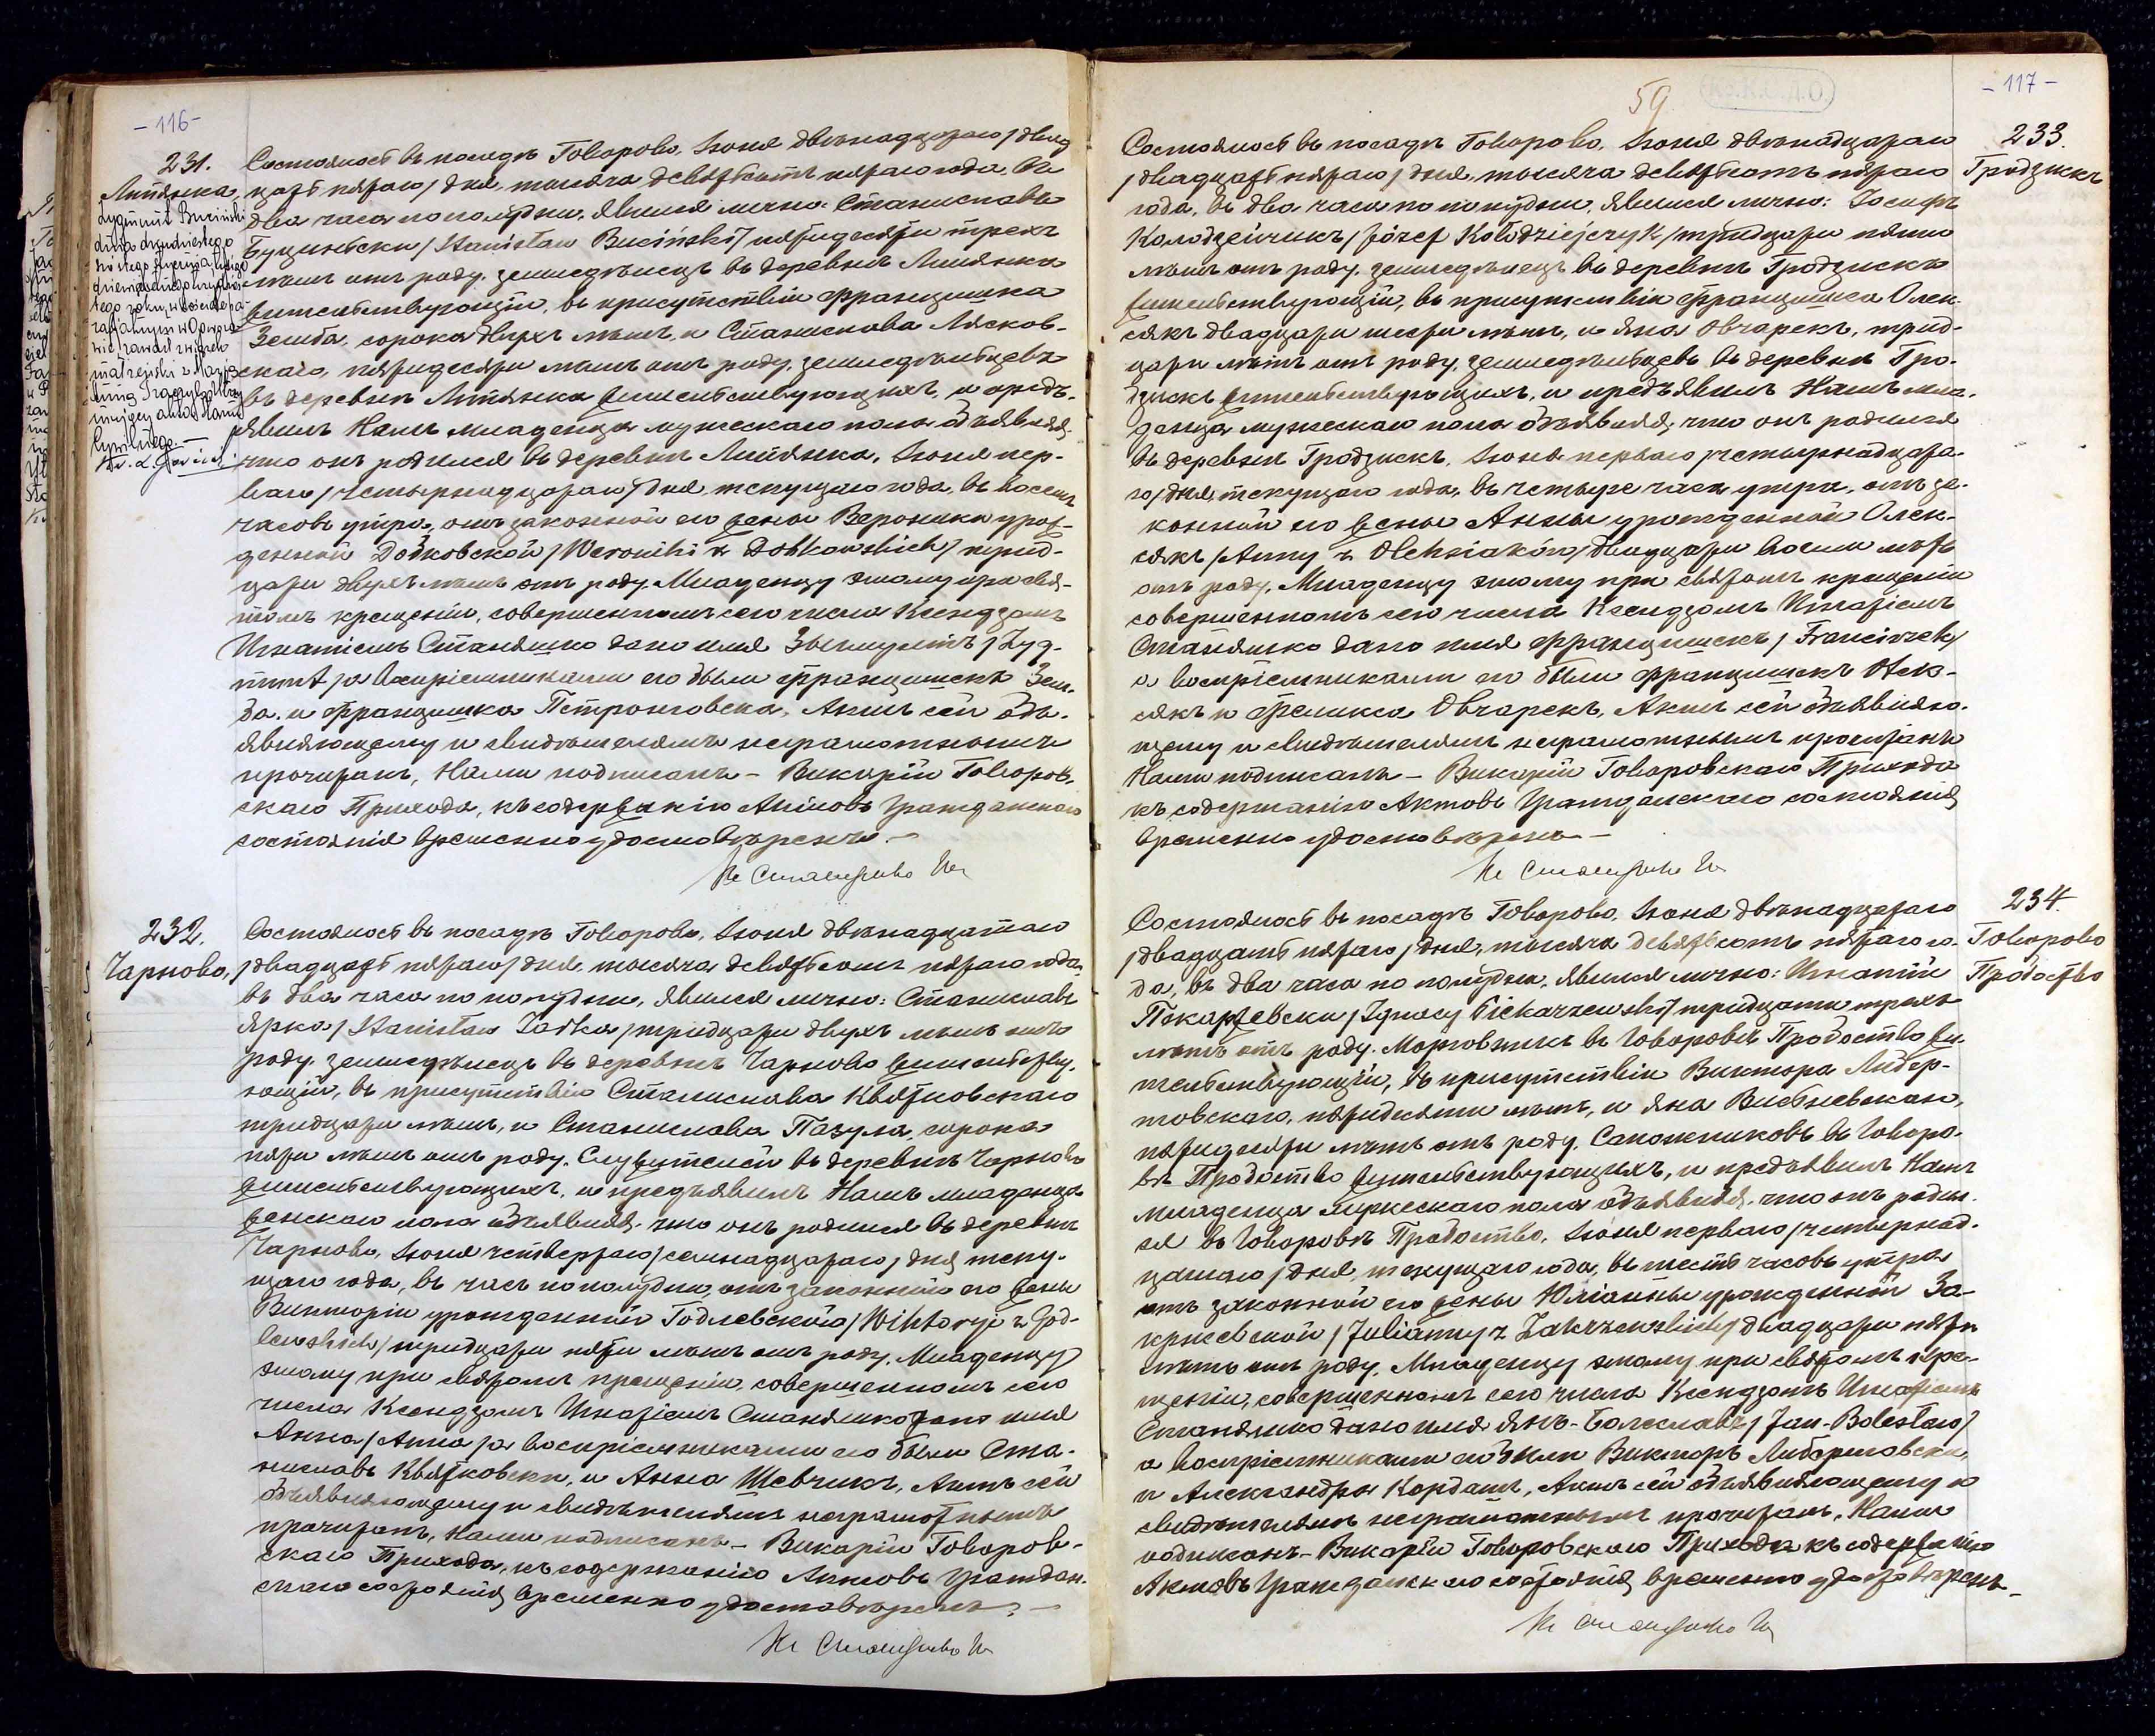 - 116 -
231.
Липянка
Zygmunt Buciński
dnia drudziestego
szóstego stycznia
roku, w kościele pa-
rafjalnym w
wie, zawarł związek
małżeński z Marją
Anną
Состоялось въ посадѣ Говорово, Іюня двѣнадцатаго /двад
цать пятаго/ дня, тысяча девятьсотъ пятаго года, въ
два часа по полудни. Явился лично: Станиславъ
Буциньски /Stanisław Buciński/ пятидесяти трехъ
лѣтъ отъ роду, земледѣлецъ въ деревнѣ Липянка
жительствующій, въ присутствіи Францишка
Земба, сорока двухъ лѣтъ, и Станислава Лясков-
скаго, пятидесяти лѣтъ отъ роду, земледѣльцевъ
въ деревнѣ Липянка жительствующихъ, и предъ-
явилъ Намъ младенца мужескаго пола объявляя,
что онъ родился въ деревнѣ Липянка, Іюня пер-
ваго /четырнадцатаго/ дня, текущаго года, въ восемь
часовъ утра, отъ законной его жены Вероники урож-
денной Добковской /Weroniki z Dobkowskich/ трид-
цати двухъ лѣтъ отъ роду. Младенцу этому при свя-
томъ крещеніи, совершенномъ сего числа Ксендзомъ
Игнатіемъ Станямко дано имя Зыгмунтъ /Zyg-
munt/ а воспріемниками его были Францишекъ Зем-
ба и Францишка Петронговска. Актъ сей объ-
являющему и свидѣтелямъ неграмотнымъ
прочитанъ, Нами подписанъ - Викарій Говоров-
скаго Прихода, къ содержанію Актовъ Гражданскаго
состоянія временно удостовѣренъ. -
232.
Чарново,
Состоялось въ посадѣ Говорово, Іюня двѣнадцатаго
/двадцать пятаго/ дня, тысяча девятьсотъ пятаго года,
въ два часа по полудни, Явился лично: Станиславъ
Ярка /Stanisław Jarka/ тридцати двухъ лѣтъ отъ
роду, земледѣлецъ въ деревнѣ Чарново жительству-
ющій, въ присутствіи Станислава Квятковскаго
тридцати лѣтъ, и Станислава Пазула, сорока
пяти лѣтъ отъ роду. Служителей въ деревнѣ Чарново
жительствующихъ, и предъявилъ Намъ младенца
женскаго пола объявляя, что онъ родился въ деревнѣ
Чарново, Іюня четвертаго /семнадцатаго/ дня теку-
щаго года, въ часъ по полудни, отъ законной его жены
Викторіи урожденной Годлевской /Wiktoryi z God-
lewskich/ тридцати пяти лѣтъ отъ роду. Младенцу
этому при святомъ крещеніи, совершенномъ сего
числа Ксендзомъ Игнатіемъ Станямко дано имя
Анна /Anna/ а воспріемниками его были Ста-
ниславъ Квятковски, и Анна Шевчикъ, Актъ сей
объявляющему и свидѣтелямъ неграмотнымъ
прочитанъ, Нами подписанъ - Викарій Говоров-
скаго Прихода, къ содержанію Актовъ Граждан-
скаго состоянія временно удостовѣренъ. -
59.
- 117 -
233.
Гродзискъ
Состоялось въ посадѣ Говорово, Іюня двѣнадцатаго
/двадцать пятаго/ дня, тысяча девятьсотъ пятаго
года, въ два часа по полудни, Явился лично: Іосифъ
Колодзейчикъ /Józef Kołodziejczyk/ тридцати пяти
лѣтъ отъ роду, земледѣлецъ въ деревнѣ Гродзискъ
жительствующій, въ присутствіи Францишка Олек-
сякъ двадцати шести лѣтъ, и Яна Овчарекъ, трид-
цати лѣтъ отъ роду, земледѣльцевъ въ деревнѣ Гро-
дзискъ жительствующихъ, и предъявилъ Намъ мла-
денца мужескаго пола объявляя, что онъ родился
въ деревнѣ Гродзискъ, Іюня перваго /четырнадцата-
го/ дня, текущаго года, въ четыре часа утра, отъ за-
конной его жены Анны урожденной Олек-
сякъ /Anny z Oleksiaków/ двадцати восьми лѣтъ
отъ роду. Младенцу этому при святомъ крещеніи
совершенномъ сего числа Ксендзомъ Игнатіемъ
Станямко дано имя Францишекъ /Franciszek/
а воспріемниками его были Францишекъ Олек-
сякъ и Феликса Овчарекъ, Актъ сей объявляю-
щему и свидѣтелямъ неграмотнымъ прочитанъ
Нами подписанъ - Викарій Говоровскаго Прихода
къ содержанію Актовъ Гражданскаго состоянія
временно удостовѣренъ -
234.
Говорово
Пробоство
Состоялось въ посадѣ Говорово, Іюня двѣнадцатаго
/двадцать пятаго/ дня, тысяча девятьсотъ пятаго го-
да, въ два часа по полудни, Явился лично: Игнатій
Пекаржевски /Ignacy Piekarzewski/ тридцати трехъ
лѣтъ отъ роду. Морговникъ въ Говоровѣ Пробоство жи-
тельствующій, въ присутствіи Виктора Либер-
товскаго, пятидесяти лѣтъ, и Яна Висьневскаго,
пятидесяти лѣтъ отъ роду, Сапожниковъ въ Говоро-
вѣ Пробоство жительствующихъ, и предъявилъ Намъ
младенца мужескаго пола объявляя, что онъ родил-
ся въ Говоровѣ Пробоство, Іюня перваго /четырнад-
цатаго/ дня, текущаго года, въ шесть часовъ утра
отъ законной его жены Юліанны урожденной За-
кржевской /Julianny z Zakrzewskich/ двадцати пяти
лѣтъ отъ роду. Младенцу этому при святомъ кре-
щеніи, совершенномъ сего числа Ксендзомъ Игнатіемъ
Станямко дано имя Янъ-Болеславъ /Jan-Bolesław/
а воспріемниками его были Викторъ Либертовски,
и Александра Кордашъ, Актъ сей объявляющему и
свидѣтелямъ неграмотнымъ прочитанъ, Нами
подписанъ - Викарій Говоровскаго Прихода къ содержанію
Актовъ Гражданскаго состоянія временно удостовѣренъ -